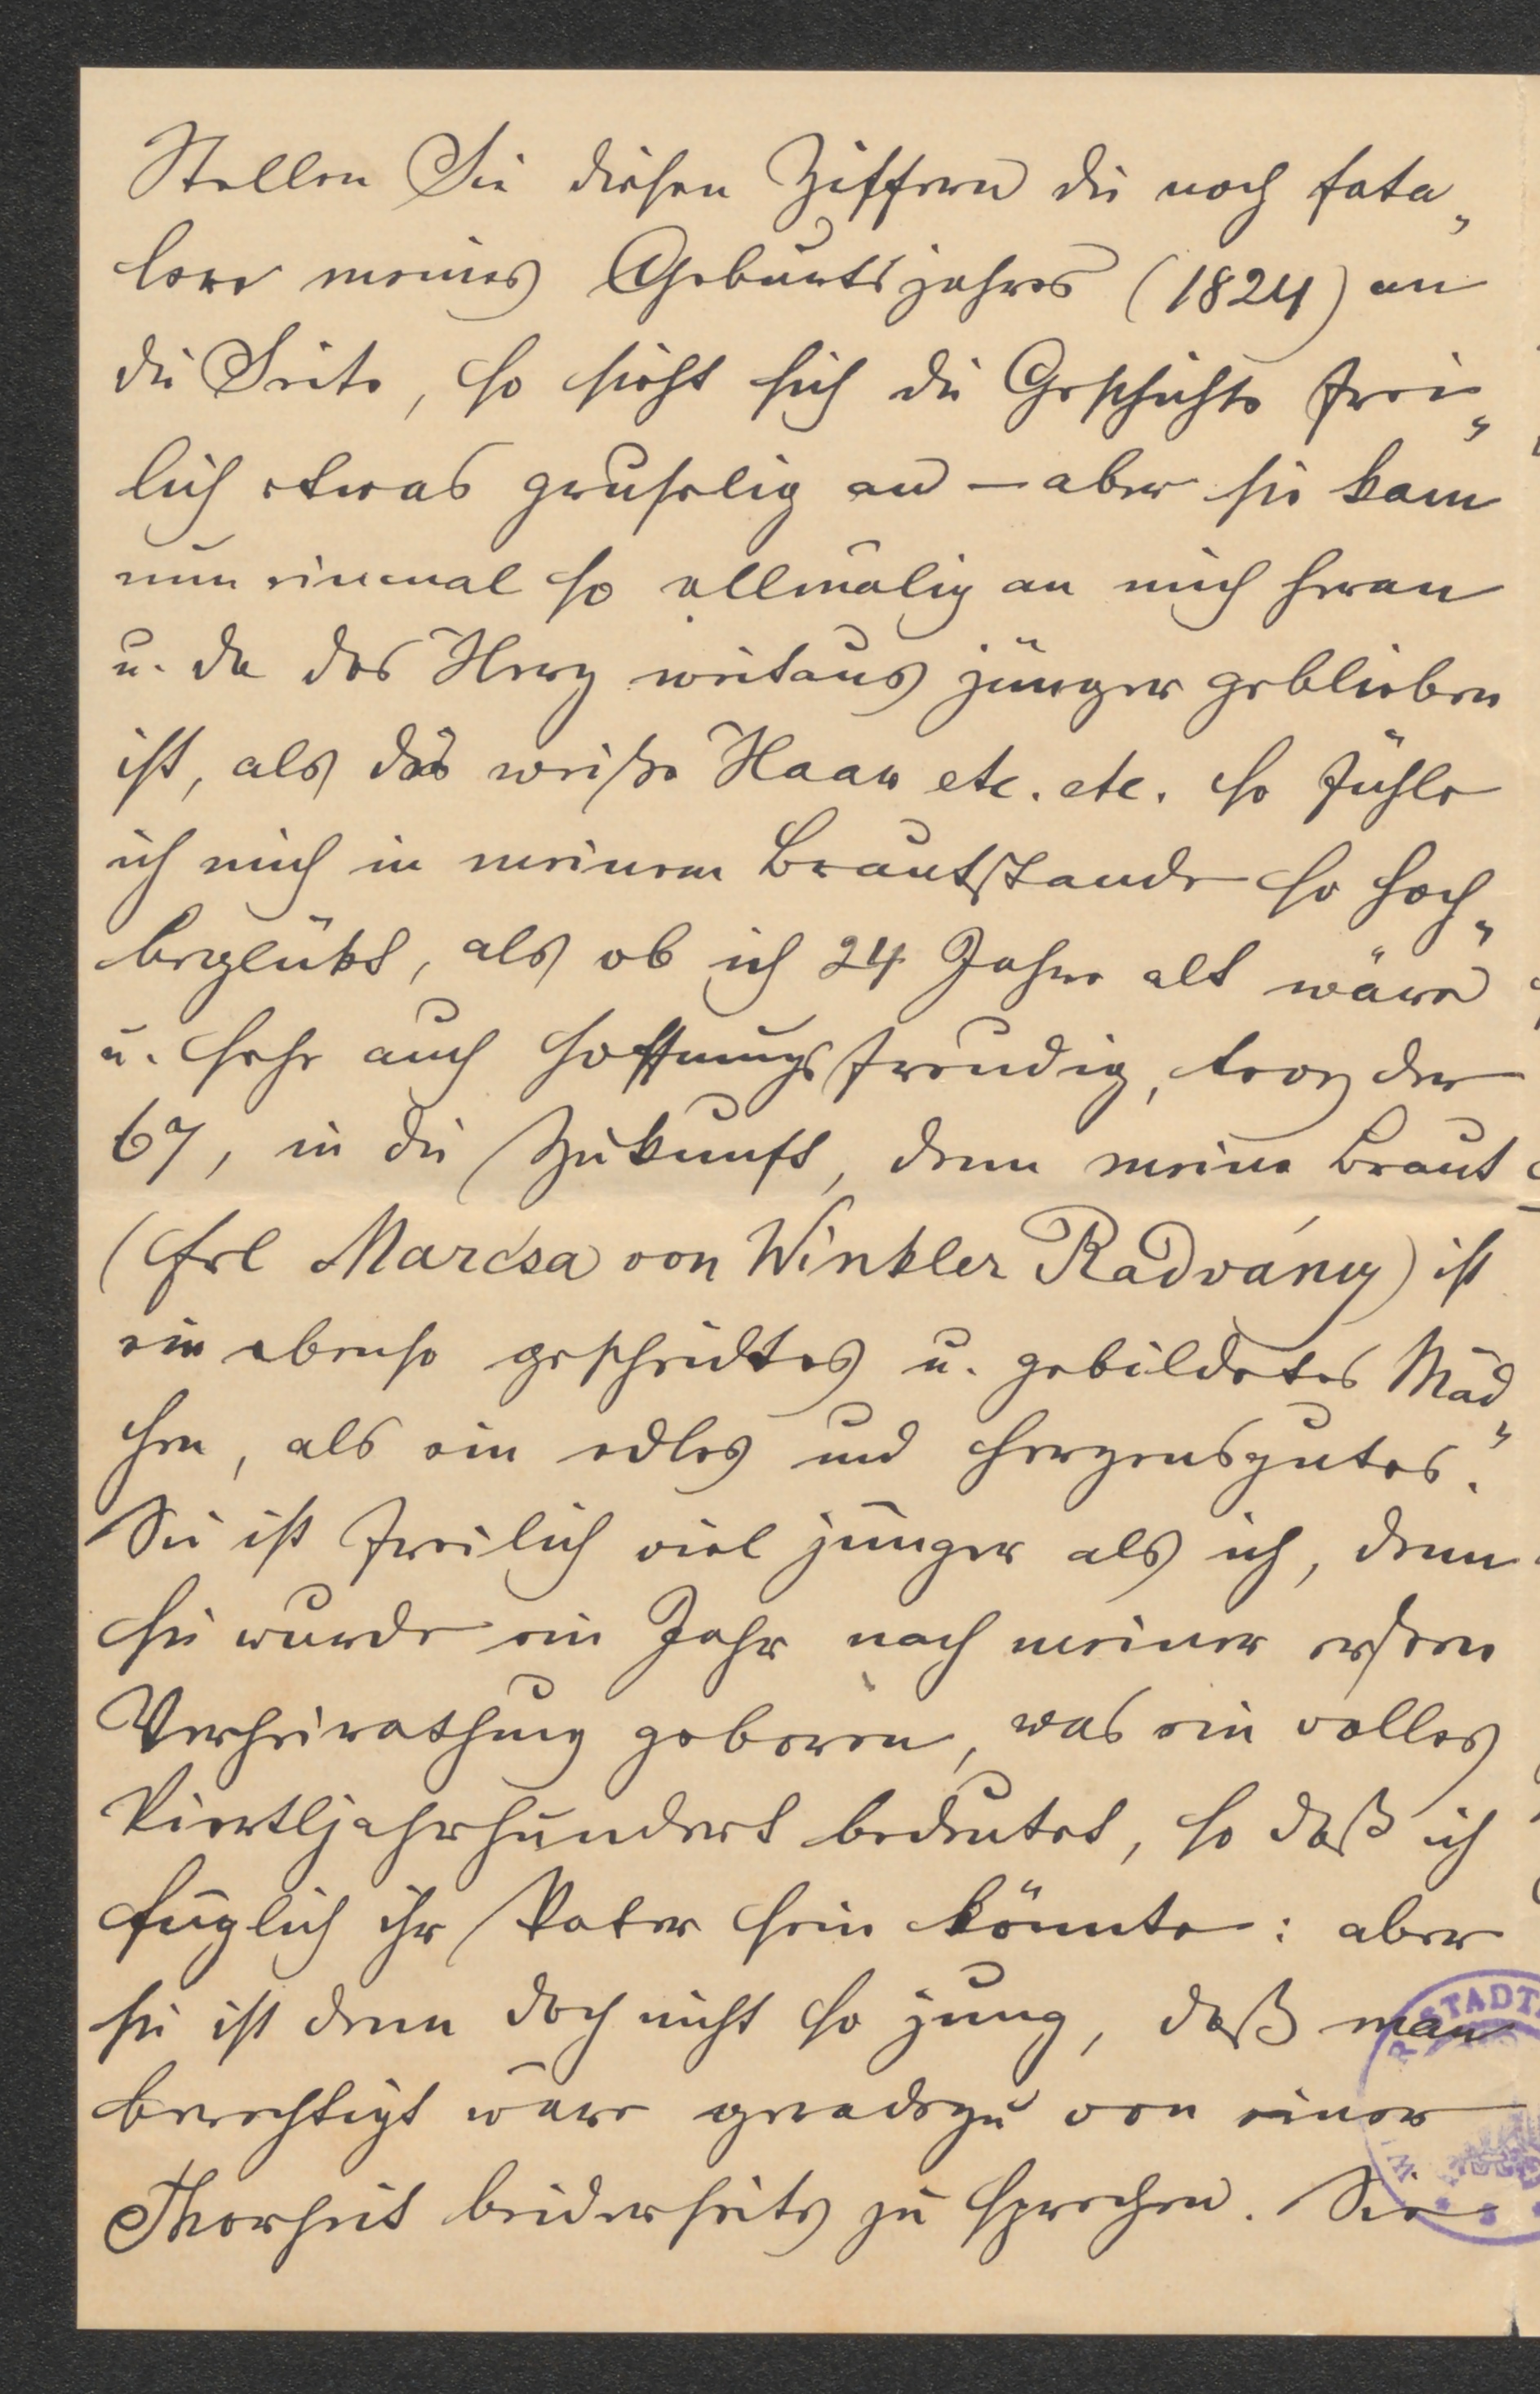 Stellen Sie diesen Ziffern die noch fata„
lere meines Geburtsjahres (1824) an
die Seite, so sieht sich die Geschichte frei„
lich etwas gruselig an — aber sie kam
nun einmal so allmälig an mich heran
u. da das Herz weitaus jünger geblieben
ist, als das weiße Haar etc. etc. so fühle
ich mich in meinem Brautstande so hoch„
beglükt, als ob ich 24 Jahre alt wäre
u. sehe auch hoffnungsfreudig, troz der
67, in die Zukunft, denn meine Braut
(Frl Marcsa von Winkler Radvány) ist
ein ebenso gescheidtes u. gebildetes Mäd„
chen, als ein edles und herzensgutes.
Sie ist freilich viel jünger als ich, denn
sie wurde ein Jahr nach meiner ersten
Verheirathung geboren, was ein volles
Viertljahrhundert bedeutet, so daß ich
füglich ihr Vater sein könnte: aber
sie ist denn doch nicht so jung, daß man
berechtigt wäre geradezu von einer
Thorheit beiderseits zu sprechen. Sie
STADT